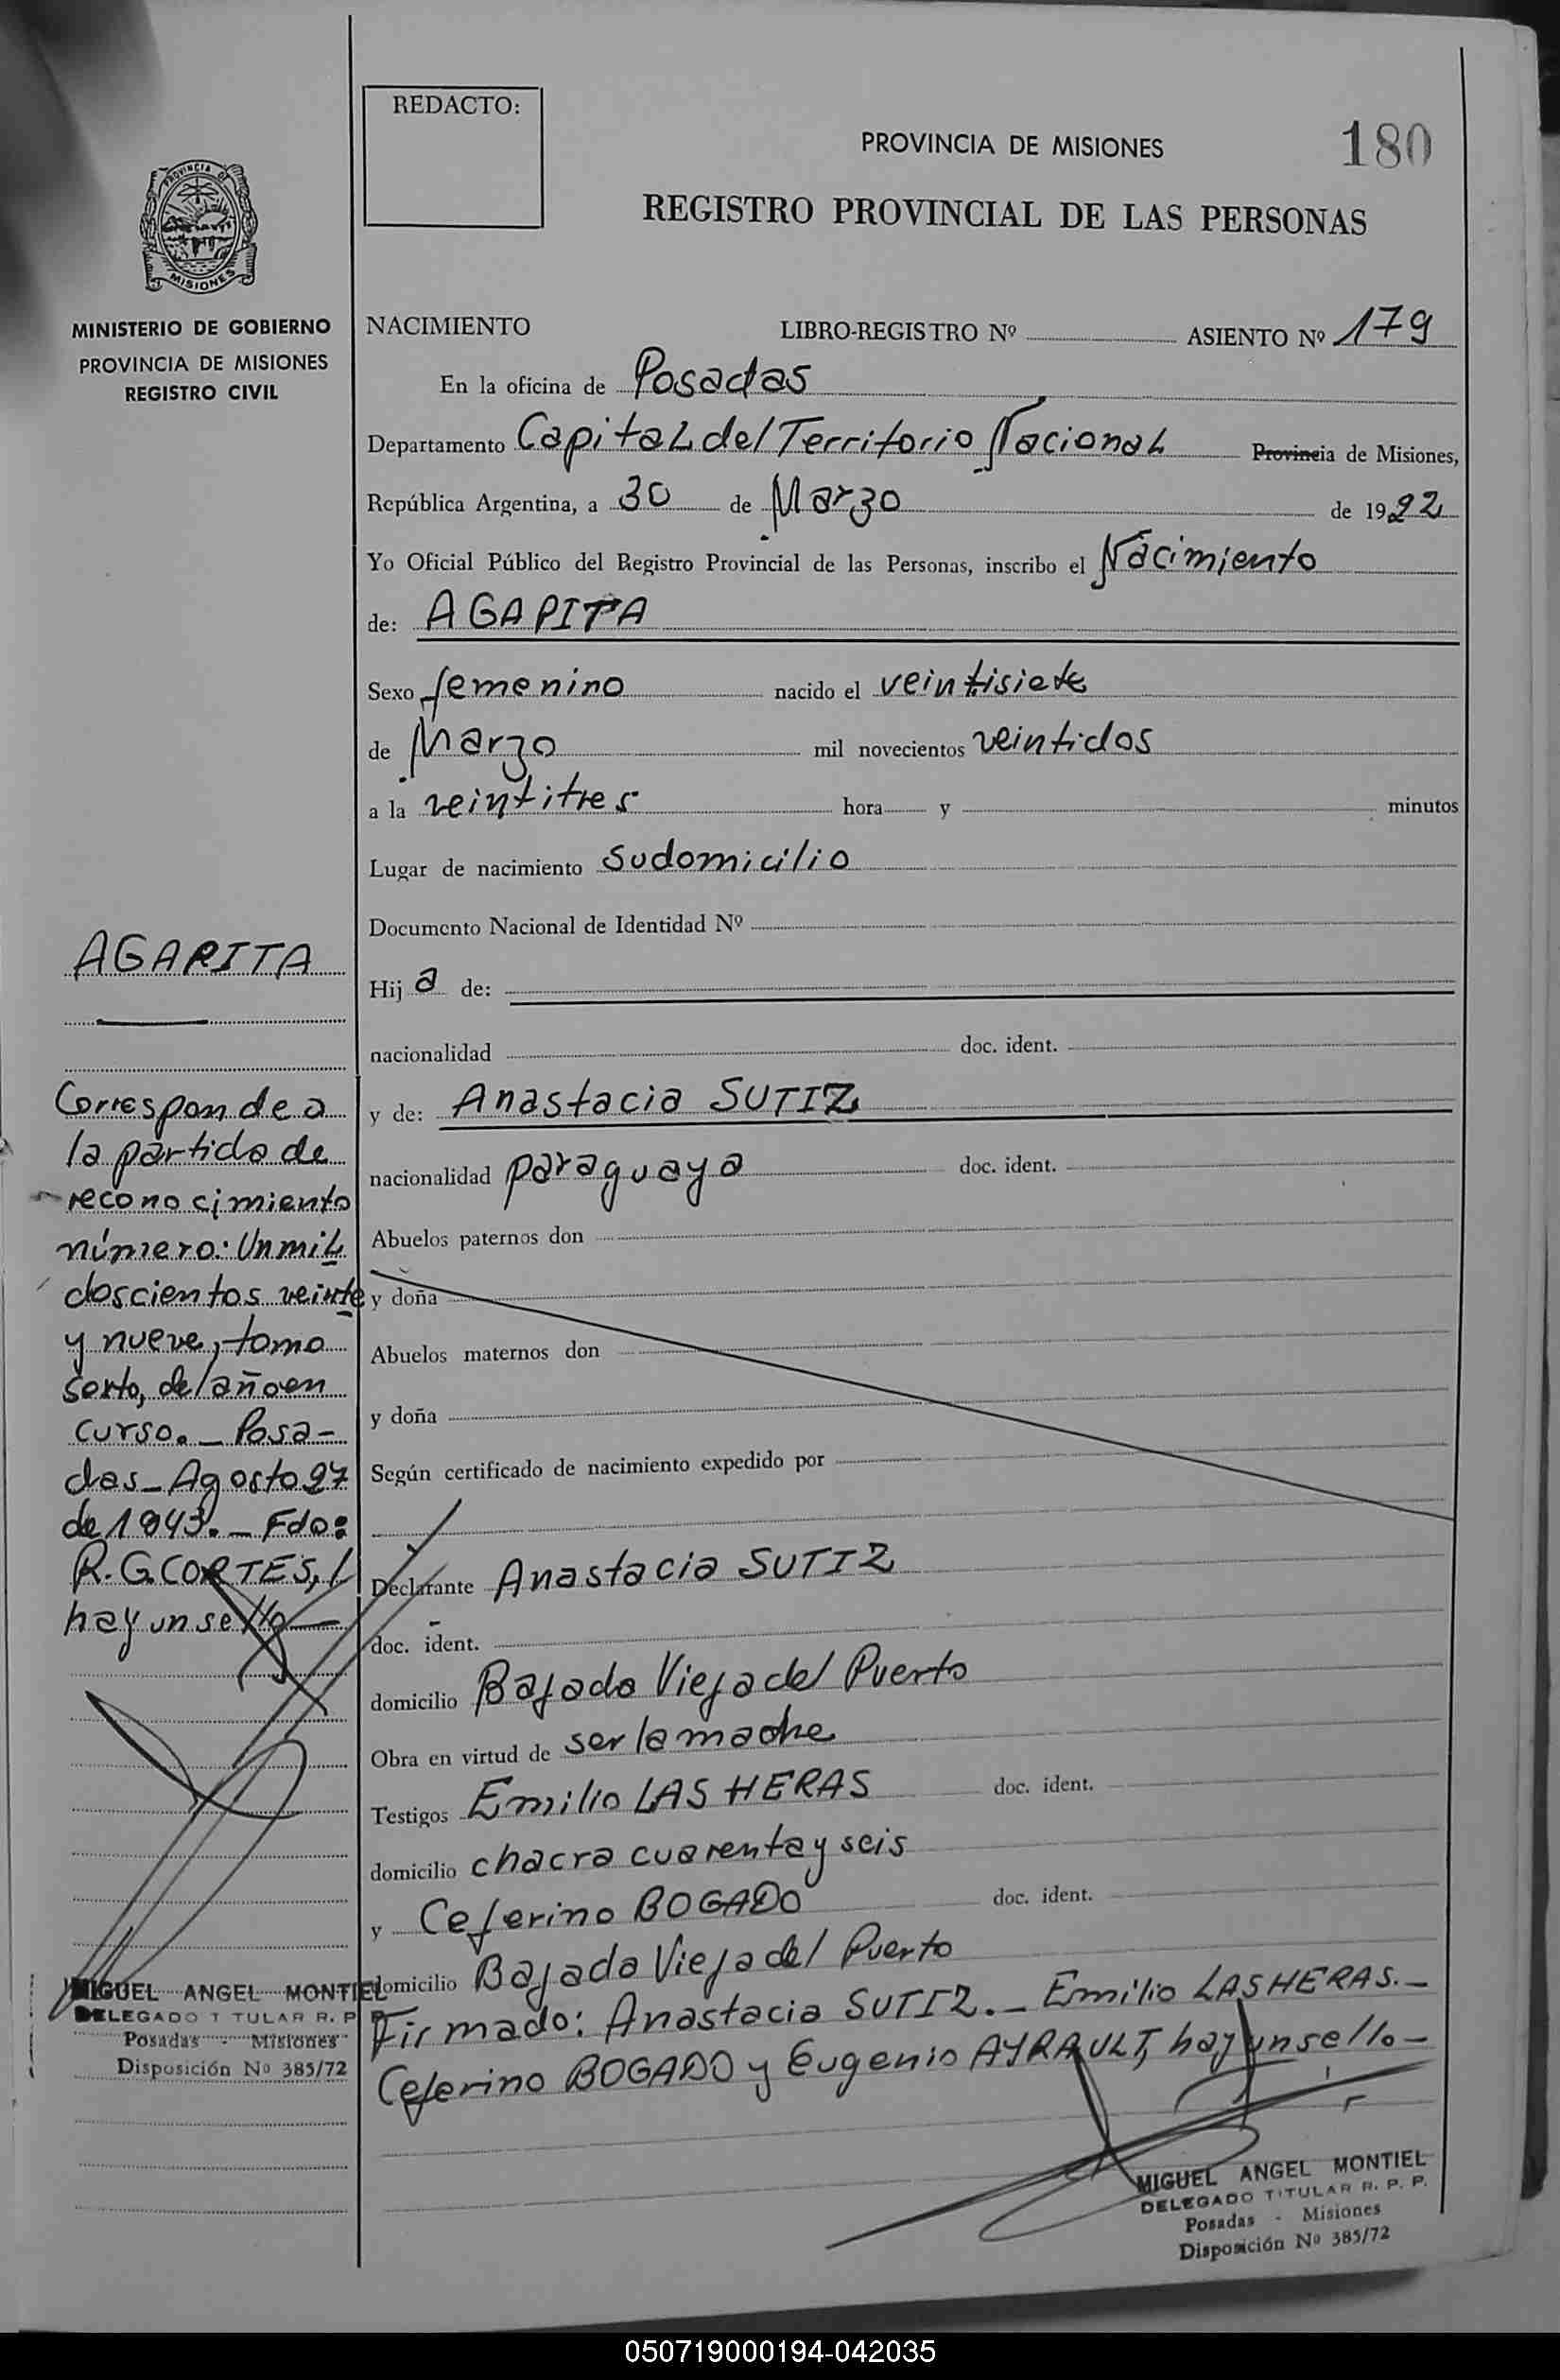 REDACTO:
PROVINCIA DE MISIONES
180
REGISTRO PROVINCIAL DE LAS PERSONAS
PROVINCIA DE
MISIONES
MINISTERIO DE GOBIERNO
PROVINCIA DE MISIONES
REGISTRO CIVIL
NACIMIENTO LIBRO-REGISTRO Nº ASIENTO Nº 179
En la oficina de Posadas
Departamento Capital del Territorio Nacional Provincia de Misiones,
República Argentina, a 30 de Marzo de 1922
Yo Oficial Público del Registro Provincial de las Personas, inscribo el Nacimiento
de: AGAPITA
Sexo femenino nacido el veintisiete
de Marzo mil novecientos veintidos
a la veintitres hora y minutos
Lugar de nacimiento Su domicilio
Documento Nacional de Identidad Nº
Hij a de:
nacionalidad doc. ident.
y de: Anastacia SUTIZ
nacionalidad paraguaya doc. ident.
Abuelos paternos don
y doña
Abuelos maternos don
y doña
Según certificado de nacimiento expedido por
Declarante Anastacia SUTIZ
doc. ident.
domicilio Bajada Vieja del Puerto
Obra en virtud de ser la madre
Testigos Emilio LAS HERAS doc. ident.
domicilio chacra cuarenta y seis
y Ceferino BOGADO doc. ident.
domicilio Bajada Vieja del Puerto
Firmado: Anastacia SUTIZ._ Emilio LAS HERAS._
Ceferino BOGADO y Eugenio AYRAULT, hay un sello_
MIGUEL ANGEL MONTIEL
DELEGADO TITULAR R. P. P.
Posadas - Misiones
Disposición Nº 385/72
AGAPITA
Corresponde a
la partida de
reconocimiento
número: Un mil
doscientos veinte
y nueve, tomo
sexto, del año en
curso._ Posa-
das_ Agosto 27
de 1943._ Fdo:
R. G. CORTES, /
hay un sello_
MIGUEL ANGEL MONTIEL
DELEGADO T TULAR R. P P
Posadas - Misiones
Disposición Nº 385/72
050719000194-042035